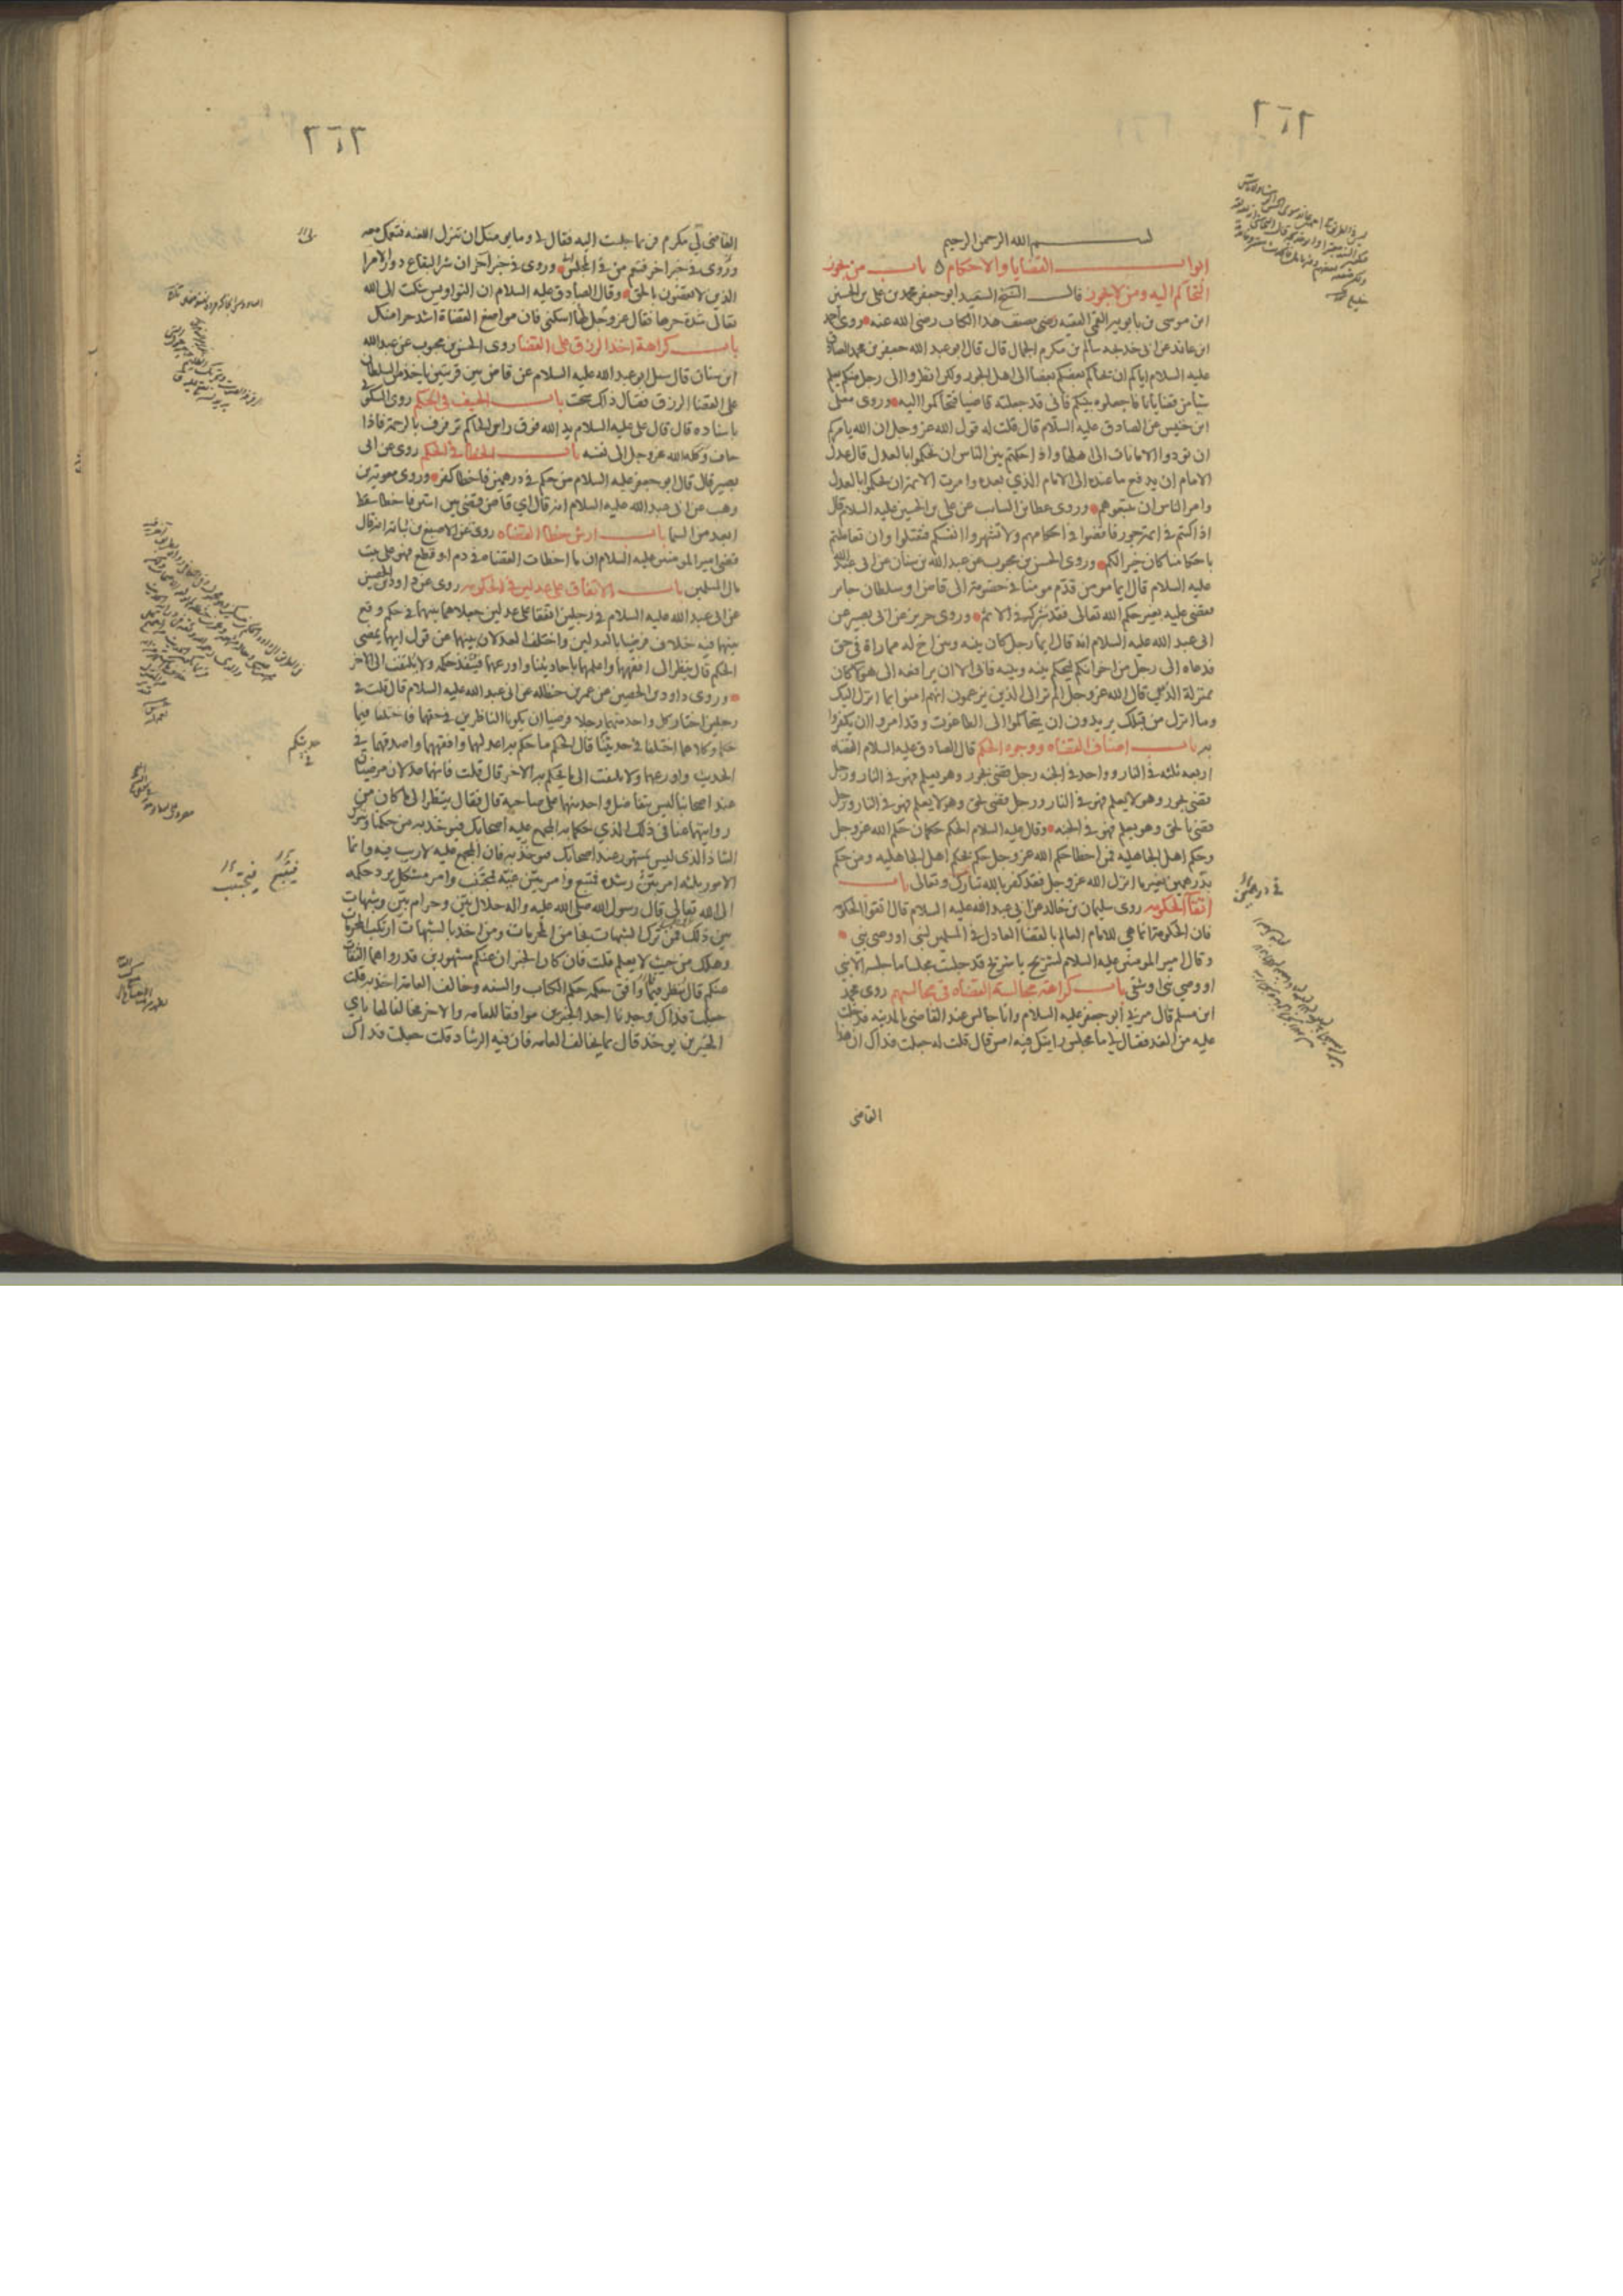 ٢٦٢
بسم الله الرحمن الرحيم
ابواب القضايا والاحكام باب من يجوز
التحاكم اليه ومن لا يجوز قال الشيخ السعيد ابو جعفر محمد بن على بن الحسين
ابن موسى بن بابويه القمى الفقيه رضى مصنف هذا الكتاب رضى الله عنه روى احمد
ابن عائذ عن ابى خديجه سالم بن مكرم الجمال قال قال ابو عبد الله جعفر بن محمد الصادق
عليه السلام اياكم ان يحاكم بعضكم بعضا الى اهل الجور ولكن انظروا الى رجل منكم يعلم
شيا من قضايانا فاجعلوه بينكم فانى قد جعلته قاضيا فتحاكموا اليه وروى معلى
ابن خنيس عن الصادق عليه السلام قال قلت له قول الله عز وجل ان الله يامركم
ان تودوا الامانات الى اهلها واذا حكمتم بين الناس ان تحكموا بالعدل قال عدل
الامام ان يدفع ما عنده الى الامام الذي بعده وامرت الائمة ان يحكموا بالعدل
وامر الناس ان يتبعوهم وروى عطا بن السائب عن على بن الحسين عليه السلام قال
اذا كنتم فى ائمة جور فاقضوا فى احكامهم ولا تشهروا انفسكم فتقتلوا وان تعاملتم
باحكامنا كان خيرا لكم وروى الحسن بن محبوب عن عبد الله بن سنان عن ابى عبد الله
عليه السلام قال ايما مومن قدم مومنا فى خصومة الى قاض او سلطان جاير
فقضى عليه بغير حكم الله تعالى فقد شركه فى الاثم وروى حريز عن ابى بصير عن
ابى عبد الله عليه السلام انه قال ايما رجل كان بينه وبين اخ له مماراة فى حق
فدعاه الى رجل من اخوانكم ليحكم بينه وبينه فابى الا ان يرافعه الى هولا كان
بمنزلة الذين قال الله عز وجل الم تر الى الذين يزعمون انهم امنوا بما انزل اليك
وما انزل من قبلك يريدون ان يتحاكموا الى الطاغوت وقد امروا ان يكفروا
به باب اصناف القضاه ووجوه الحكم قال الصادق عليه السلام القضاه
اربعه ثلثه فى النار وواحد فى الجنه رجل قضى بجور وهو يعلم فهو فى النار ورجل
قضى بجور وهو لا يعلم فهو فى النار ورجل قضى بحق وهو لا يعلم فهو فى النار ورجل
قضى بالحق وهو يعلم فهو فى الجنه وقال عليه السلام الحكم حكمان حكم الله عز وجل
وحكم اهل الجاهليه فمن اخطا حكم الله عز وجل حكم بحكم اهل الجاهليه ومن حكم
بدرهمين بغير ما انزل الله عز وجل فقد كفر بالله تبارك وتعالى باب
اتقا الحكومه روى سليمان بن خالد عن ابى عبد الله عليه السلام قال اتقوا الحكومه
فان الحكومة انما هى للامام العالم بالقضا العادل فى المسلمين لنبى او وصى نبى
وقال امير المومنين عليه السلام لشريح يا شريح قد جلست مجلسا ما جلسه الا نبى
او وصى نبى او شقى باب كراهة مجالسة القضاه فى مجالسهم روى محمد
ابن مسلم قال مر بى ابو جعفر عليه السلام وانا جالس عند القاضى بالمدينه فدخلت
عليه من الغد فقال لى ما مجلس رايتك فيه امس قال قلت له جعلت فداك ان هذا
القاضى
فى درهمين
٢٦٣
القاضى لى مكرم فربما جلست اليه فقال لى وما يومنك ان تنزل اللعنه فتعمك معه
وروى فى خبر اخر فتعم من فى المجلس وروى فى خبر آخر ان شر البقاع دور الامرا
الذين لا يقضون بالحق وقال الصادق عليه السلام ان النواويس شكت الى الله
تعالى شدة حرها فقال عز وجل لها اسكنى فان مواضع القضاة اشد حرا منك
باب كراهة اخذ الرزق على القضا روى الحسن بن محبوب عن عبد الله
ابن سنان قال سئل ابو عبد الله عليه السلام عن قاض بين قريتين ياخذ من السلطان
على القضا الرزق فقال ذلك سحت باب الحيف فى الحكم روى السكونى
باسناده قال قال على عليه السلام يد الله فوق راس الحاكم ترفرف بالرحمة فاذا
حاف وكله الله عز وجل الى نفسه باب الخطا فى الحكم روى عن ابى
بصير قال قال ابو جعفر عليه السلام من حكم فى درهمين فاخطا كفر وروى معوية بن
وهب عن ابى عبد الله عليه السلام انه قال اى قاض قضى بين اثنين فاخطا سقط
ابعد من السما باب ارش خطا القضاه روى عن الاصبغ بن نباته انه قال
قضى امير المومنين عليه السلام ان ما اخطات القضاه فى دم او قطع فهو على بيت
مال المسلمين باب الاتفاق على عدلين فى الحكومه روى عن داود بن الحصين
عن ابى عبد الله عليه السلام فى رجلين اتفقا على عدلين جعلاهما بينهما فى حكم وقع
بينهما فيه خلاف فرضيا بالعدلين واختلف العدلان بينهما عن قول ايهما يمضى
الحكم قال ينظر الى افقههما واعلمهما باحاديثنا واورعهما فينفذ حكمه ولا يلتفت الى الاخر
وروى داود بن الحصين عن عمر بن حنظله عن ابى عبد الله عليه السلام قال قلت فى
رجلين اختار كل واحد منهما رجلا فرضيا ان يكونا الناظرين فى حقهما فاختلفا فيما
حكما وكلاهما اختلفا فى حديثنا قال الحكم ما حكم به اعدلهما وافقههما واصدقهما فى
الحديث واورعهما ولا يلتفت الى ما يحكم به الاخر قال قلت فانهما عدلان مرضيان
عند اصحابنا ليس يتفاضل واحد منهما على صاحبه قال فقال ينظر الى ما كان من
روايتهما عنا فى ذلك الذى حكما به المجمع عليه اصحابك فيؤخذ به من حكمنا ويترك
الشاذ الذى ليس بمشهور عند اصحابك فان المجمع عليه لا ريب فيه وانما
الامور ثلثه امر بين رشده فمتبع وامر بين غيه فمجتنب وامر مشكل يرد حكمه
الى الله تعالى قال رسول الله صلى الله عليه واله حلال بين وحرام بين وشبهات
بين ذلك فمن ترك الشبهات نجا من المحرمات ومن اخذ بالشبهات ارتكب المحرمات
وهلك من حيث لا يعلم قلت فان كان الخبران عنكم مشهورين قد رواهما الثقات
عنكم قال ينظر فيما وافق حكمه حكم الكتاب والسنه وخالف العامة اخذ به قلت
جعلت فداك وجدنا احد الخبرين موافقا للعامه والاخر مخالفا لها باى
الخبرين يوخذ قال بما يخالف العامه فان فيه الرشاد قلت جعلت فداك
حديثكم
فيتبع فيجتنب